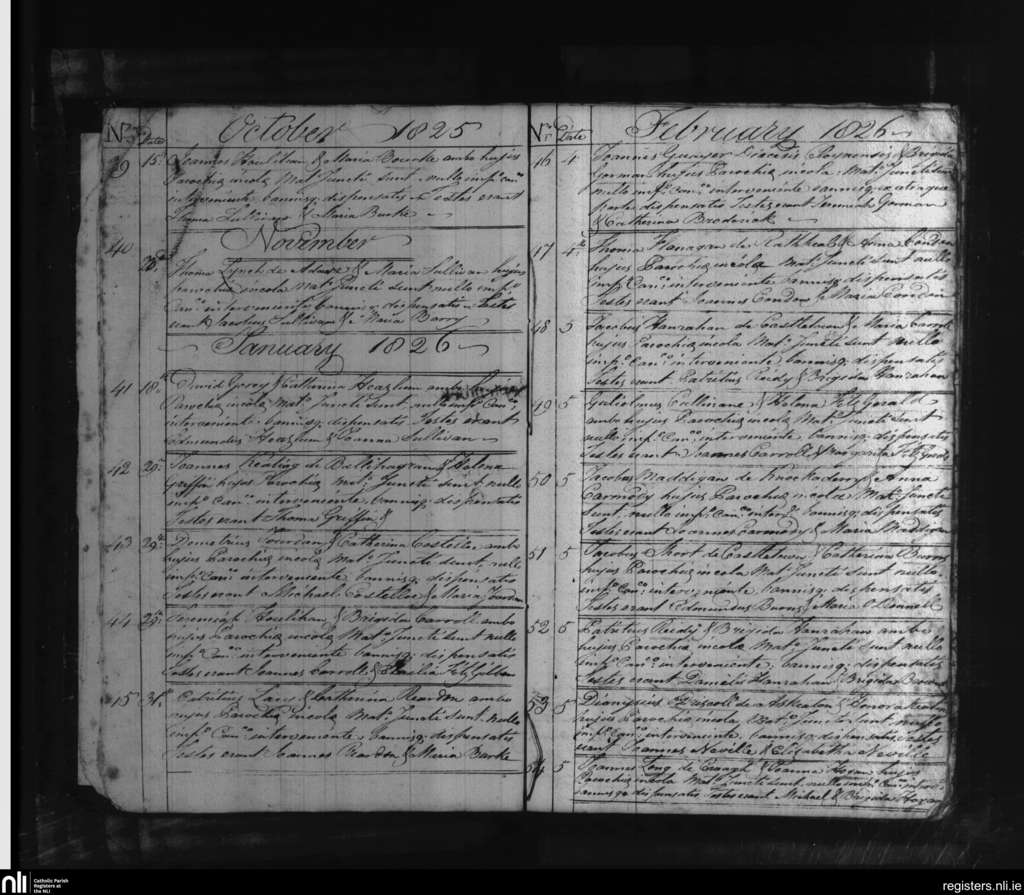 No. Date October 1825
39 15 Joannes Houlihan & Maria Bourke ambo hujus
Parochiæ incolæ Mat. Juncti sunt nullo imp. Can.
interveniente, bannisq. dispensatis Testes erant
Thoma Sullivan & Maria Burke
40 November
28 Thoma Lynch de Adare & Maria Sullivan hujus
parochiæ incola Mat. Juncti sunt nullo imp.
Can. interveniente bannisq. dispensatis Testes
erant Jacobus Sullivan & Maria Barry
January 1826
41 18 David Gorry & Catherina Heaphun ambo hujus
Parochiæ incolæ Mat. Juncti sunt nullo imp. Can.
interveniente bannisq. dispensatis Testes erant
Edmundus & Joanna Sullivan
42 29 Joannes Keating de & Helena
Griffin hujus Parochiæ Mat. Juncti sunt nullo
imp. Can. interveniente, bannisq. dispensatis
Testes erant Thoma Griffin &
43 29 Demetrius Jourdan & Catharina Costelloe ambo
hujus Parochiæ incolæ Mat. Juncti sunt, nullo
imp. Can. interveniente, bannisq. dispensatis
Testes erant Michael Costelloe & Maria Jordan
44 29 Jeremiah Houlihan & Brigida Carroll ambo
hujus Parochiæ incolæ Mat. Juncti sunt nullo
imp. Can. interveniente bannisq. dispensatis
Testes erant Joannes Carroll & Fitzgibbon
45 31 Patritius & Catherina Reardon ambo
hujus Parochiæ incolæ Mat. Juncti sunt nullo
imp. Can. interveniente, bannisq. dispensatis
Testes erunt Joannes Reardon & Maria Burke
No. Date February 1826
46 4 Joannes Diocesis & Brigida
Gorman hujus Parochiæ incola Mat. Juncti sunt
nullo imp. Can. interveniente bannisq. ex utraque
parte dispensatis Testes erant Jeremiah Gorman
& Catherina Broderick
47 4 Thoma Flanagan de Rathkeale & Anna Condon
hujus Parochiæ incola Mat. Juncti sunt nullo
imp. Can. interveniente bannisq. dispensatis
Testes erant Joannes Condon & Maria Condon
48 5 Jacobus Hanrahan de Castletown & Maria Carroll
hujus Parochiæ incola Mat. Juncti sunt nullo
imp. Can. interveniente, bannisq. dispensatis
Testes erant Patritius Reidy & Brigida Hanrahan
49 5 Gulielmus Cullinane & Helena Fitz Gerald
ambo hujus Parochiæ incolæ Mat. Juncti sunt
nullo imp. Can. interveniente, bannisq. dispensatis
Testes erant Joannes Carroll & Margarita Fitz Gerald
50 5 Jacobus Maddigan de Knockaderry & Anna
Carmody hujus Parochiæ incola Mat. Juncti
sunt, nullo imp. Can. interv. bannisq. dispensatis
Testes erant Joannes Carmody & Maria Maddigan
51 5 Jacobus Short de Castletown & Catherina Burns
hujus Parochiæ incola Mat. Juncti sunt nullo
imp. Can. interveniente, bannisq. dispensatis
Testes erant Edmundus Burns & Maria O'Donnell
52 5 Patritius Reidy & Brigida Hanrahan ambo
hujus Parochiæ incolæ Mat. Juncti sunt nullo
imp. Can. interveniente, bannisq. dispensatis
Testes erant Daniel Hanrahan & Brigida
53 5 Dionysius Driscoll de Askeaton & Honora
hujus Parochiæ incola, Mat. Juncti sunt, nullo
imp. Can. interveniente, bannisq. dispensatis Testes
erant Joannes Neville & Elizabetha Neville
54 5 Joannes Long de Croagh & Joanna Hogan hujus
Parochiæ incola Mat. Juncti sunt nullo imp. Can. interv.
bannisq. dispensatis Testes erant Michael & Brigida Hogan
nli Catholic Parish
Registers at
the NLI
registers.nli.ie